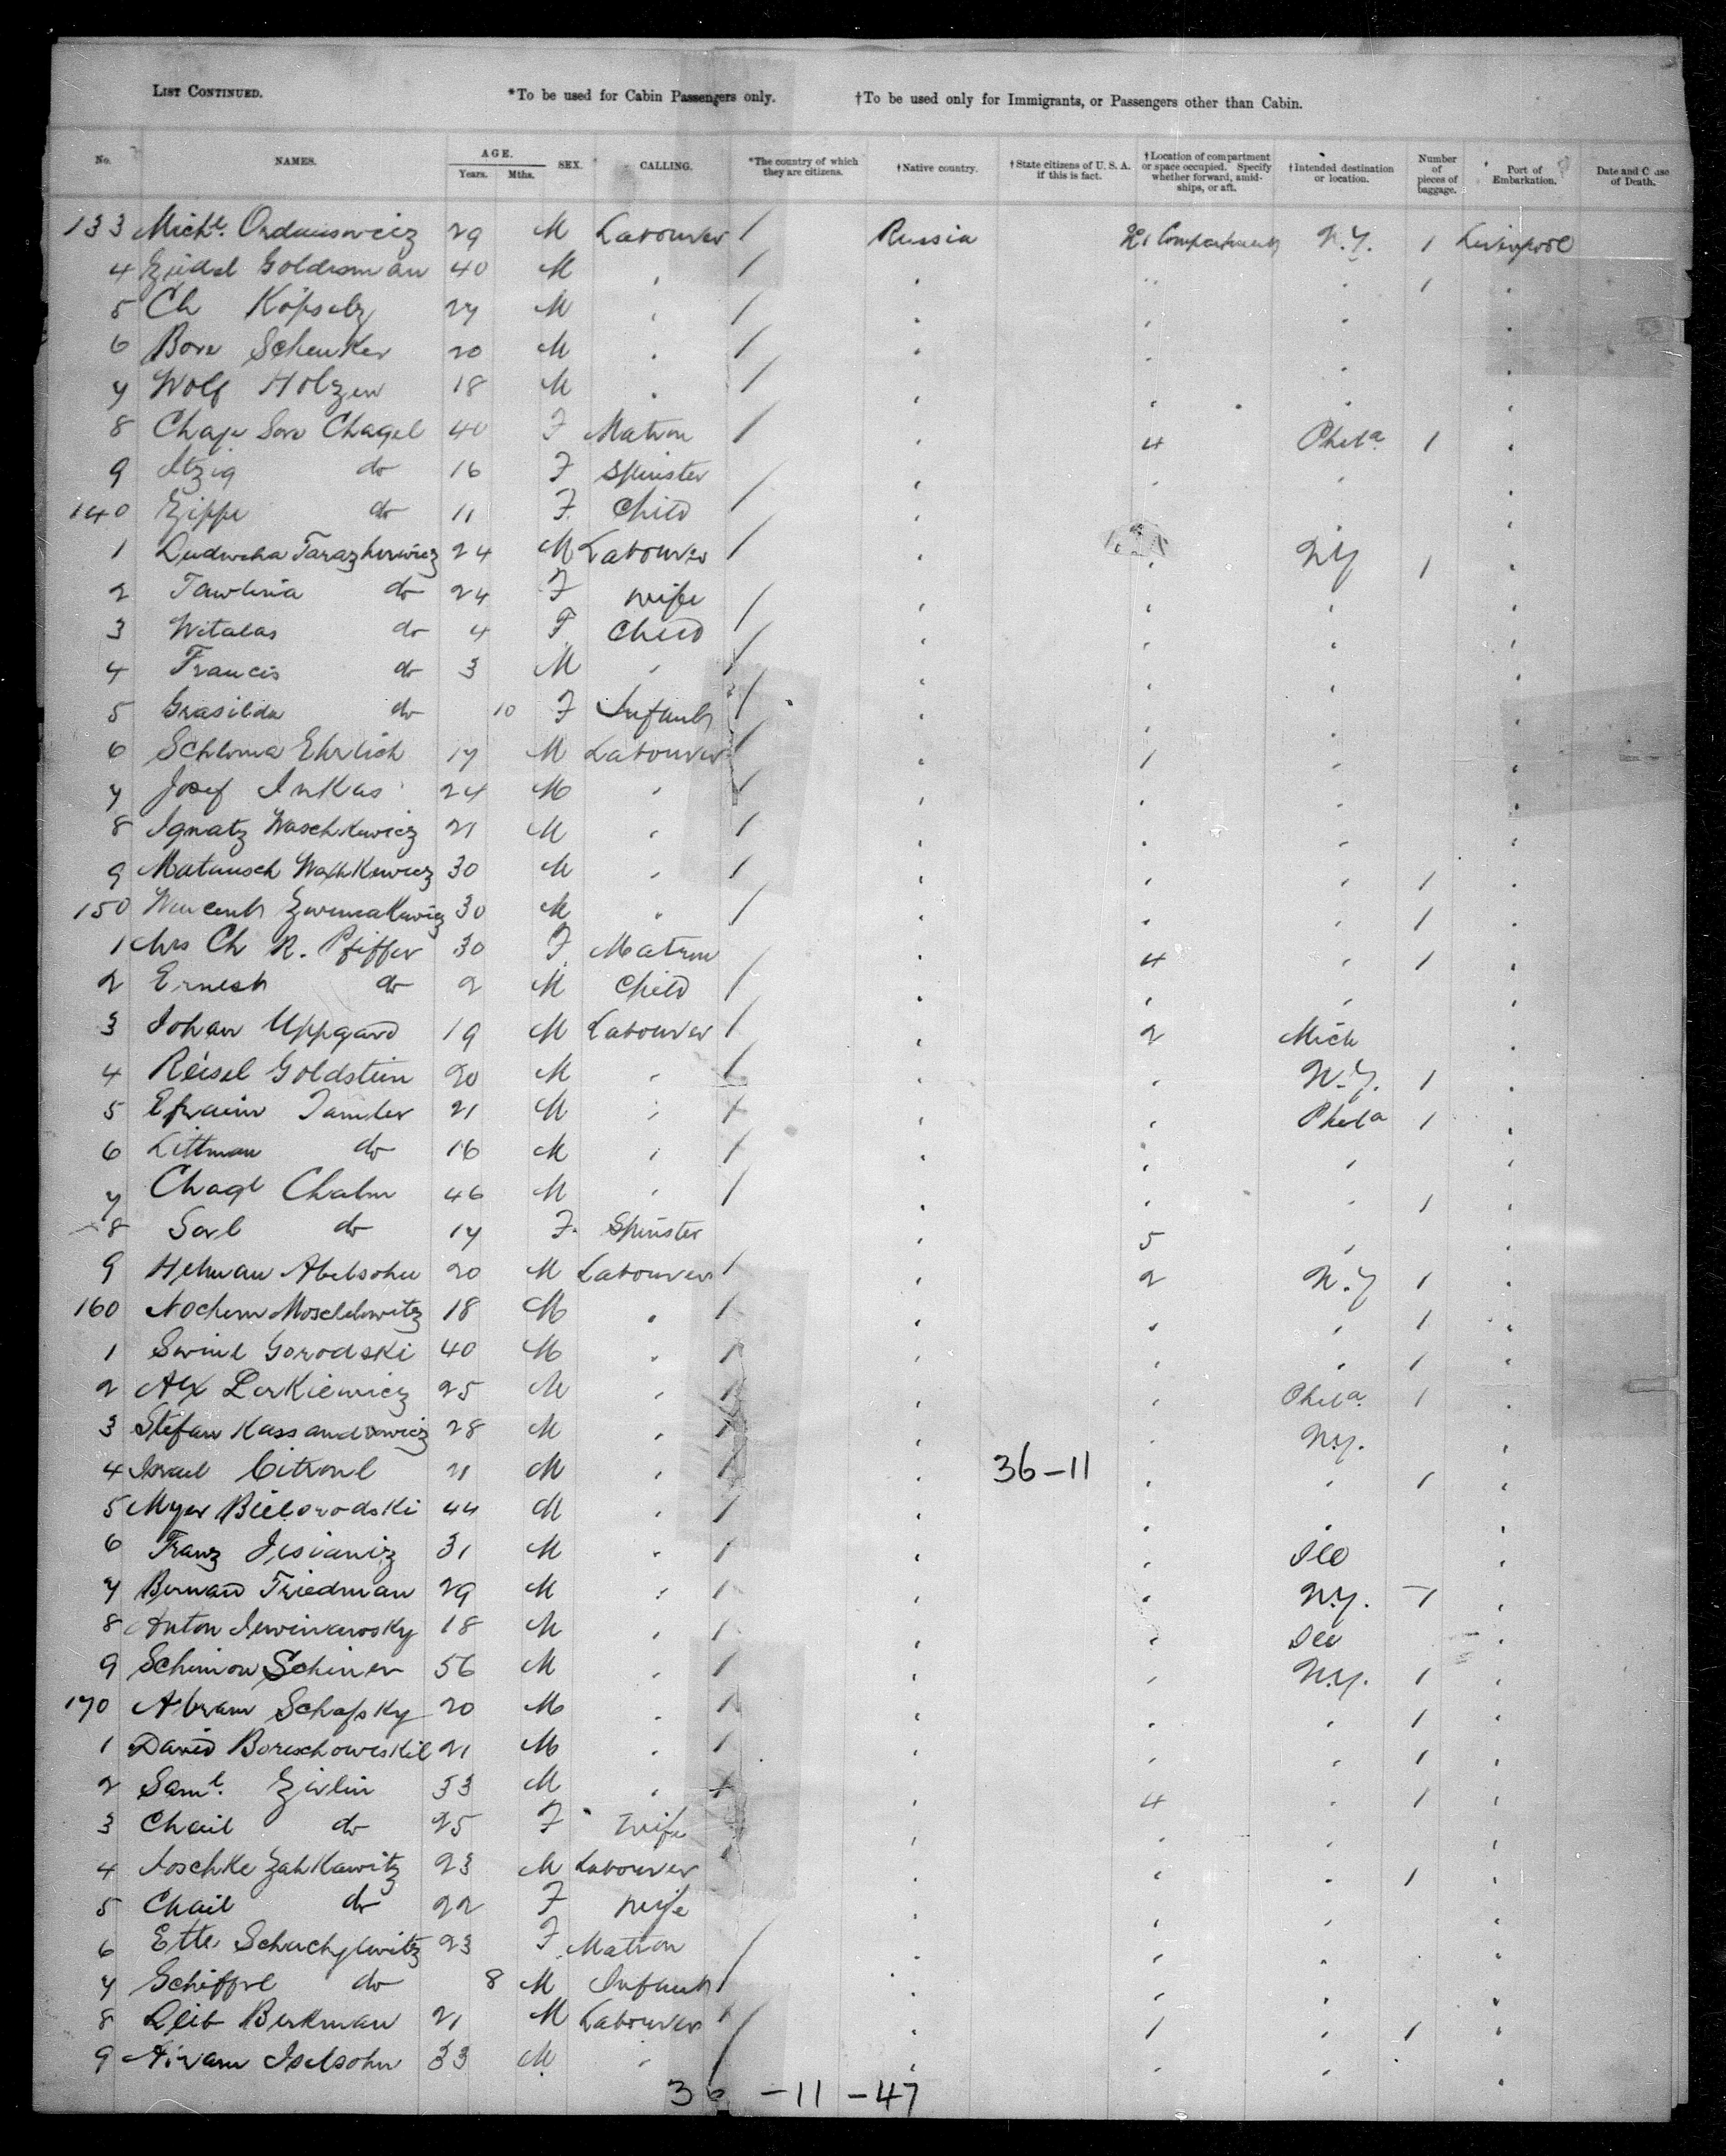 LIST CONTINUED. *To be used for Cabin Passengers only. †To be used only for Immigrants, or Passengers other than Cabin.
No. NAMES. AGE. Years. Mths. SEX. CALLING. *The country of which they are citizens. †Native country. †State citizens of U. S. A. if this is fact. †Location of compartment or space occupied. Specify whether forward, amidships, or aft. †Intended destination or location. Number of pieces of baggage. Port of Embarkation. Date and Cause of Death.
133 Michl. 29 M Labourer / Russia 1 Compartment N.Y. 1 Liverpool
4 Goldsman 40 M " / " " " 1 "
5 Ch M " / " " " "
6 Schenker 20 M " / " " " "
7 Wolf Holzen 18 M " / " " " "
8 Chaje Sore Chagel 40 F Matron / " 4 Phila. 1 "
9 Itzig do 16 F Spinster / " " " "
140 Zippe do 11 F. Child / " " " "
1 24 M Labourer / " " NY 1 "
2 do 24 F wife / " " " "
3 Witalas do 4 F Child / " " " "
4 Francis do 3 M " / " " " "
5 Grasilda do 10 F Infant / " " " "
6 Schloma Ehrlich 17 M Labourer / " 1 " "
7 Josef Inkas 24 M " / " " " "
8 Ignatz Waschkewicz 21 M " / " " " "
9 Matausch 30 M " / " " " 1 "
150 30 M " / " " " 1 "
1 Mrs Ch R. Pfiffer 30 F. Matron / " 4 " 1 "
2 Ernest do 2 M Child / " " " "
3 Johan Uppgard 19 M Labourer / " 2 Mich "
4 Reisel Goldstein 20 M " / " " N.Y. 1 "
5 Efraim 21 M " / " " Phila 1 "
6 Littman do 16 M " / " " " "
7 Chagl Chalm 46 M " / " " " 1 "
8 Sorl do 17 F. Spinster " 5 " "
9 Helman Abelsohn 20 M Labourer / " 2 N.Y 1 "
160 Nochem 18 M " / " " " 1 "
1 Gorodski 40 M " / " " " 1 "
2 Alx Lerkiewicz 25 M " / " " Phila. 1 "
3 Stefan Kassandrowicz 28 M " / " " N.Y. "
4 Israel Citronl 21 M " / " 36-11 " " 1 "
5 Myer Bielorodski 44 M " / " " " "
6 Franz 31 M " / " " Ill "
7 Bernard Friedman 29 M " / " " N.Y. 1 "
8 Anton 18 M " / " " Ill "
9 Schimon Schiner 56 M " / " " N.Y. 1 "
170 Abram Schafsky 20 M " / " " " 1 "
1 David 21 M " / " " " 1 "
2 Saml. Zivlin 33 M " / " 4 " 1 "
3 Chail do 25 F wife " " " "
4 23 M Labourer " " " 1 "
5 Chail do 22 F wife " " " "
6 Ette 23 F. Matron / " " " "
7 Schiffre do 8 M Infant / " " " "
8 Leib Berkman 21 M Labourer / " 1 " 1 "
9 Iselsohn 33 M. " / " " " "
36 -11 -47